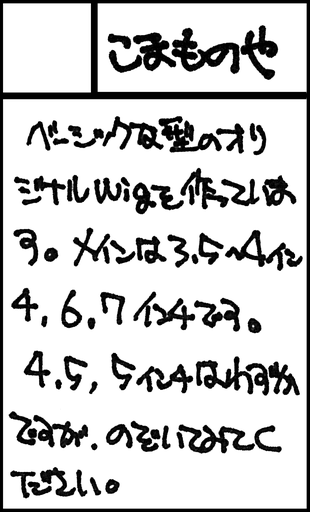 こまものや
ベーシックな型のオリ
ジナルwigを作っていま
す。メインは3.5~4イン
4,6,7インチです。
4.5,5インチはわずか
ですが、のぞいてみてく
ださい。